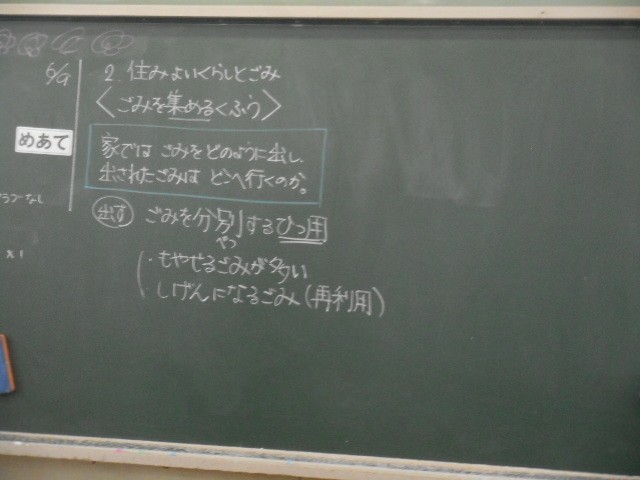 6/9
2. 住みよいくらしとごみ
〈ごみを集めるくふう〉
めあて
家では ごみをどのように出し、
出されたごみは どへ行くのか。
なし
出す ごみを分別するひつ用
べつ
・もやせるごみが多い
・しげんになるごみ(再利用)
x1